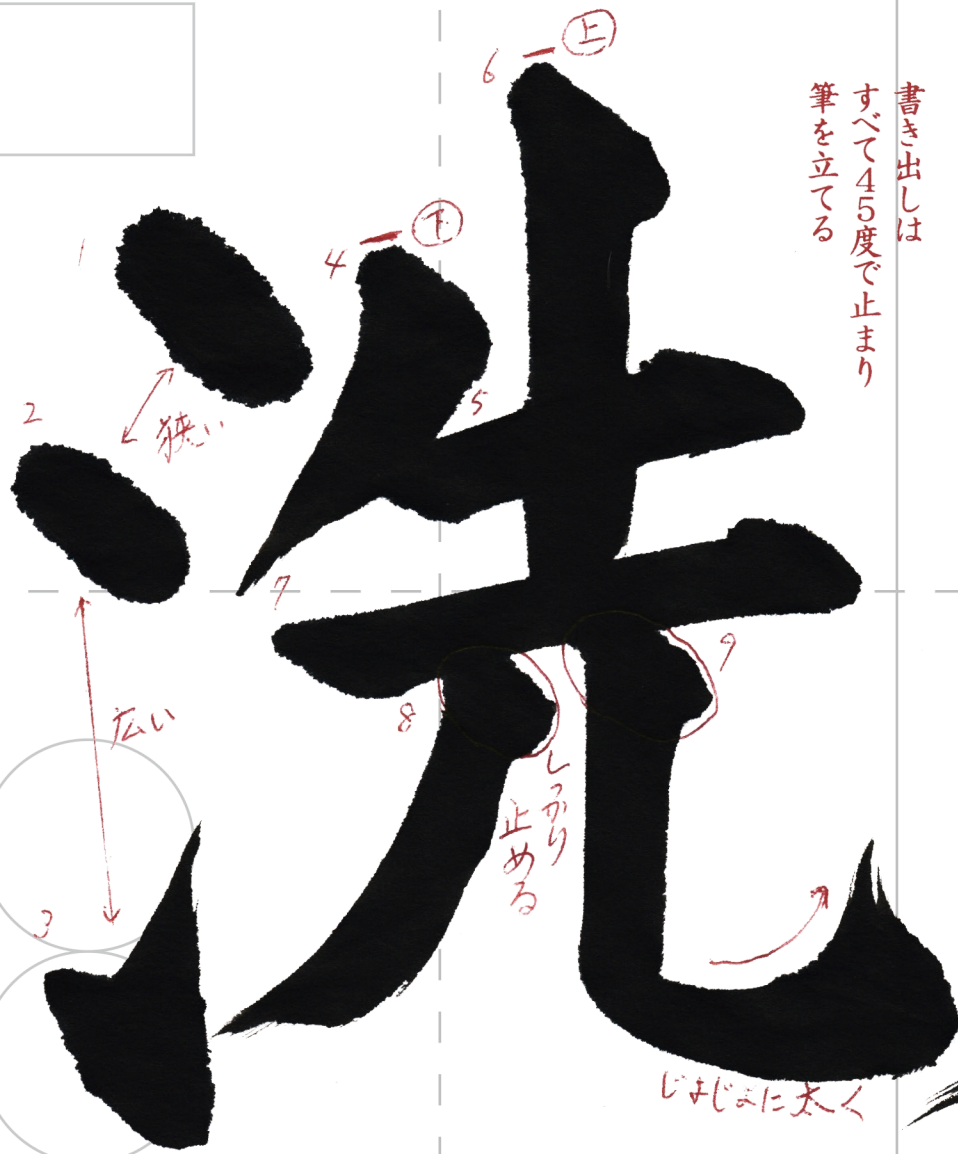 書き出しは
すべて45度で止まり
筆を立てる
洗
6
上
4
下
1
5
2
狭い
7
9
8
広い
しっかり
止める
3
じょじょに太く